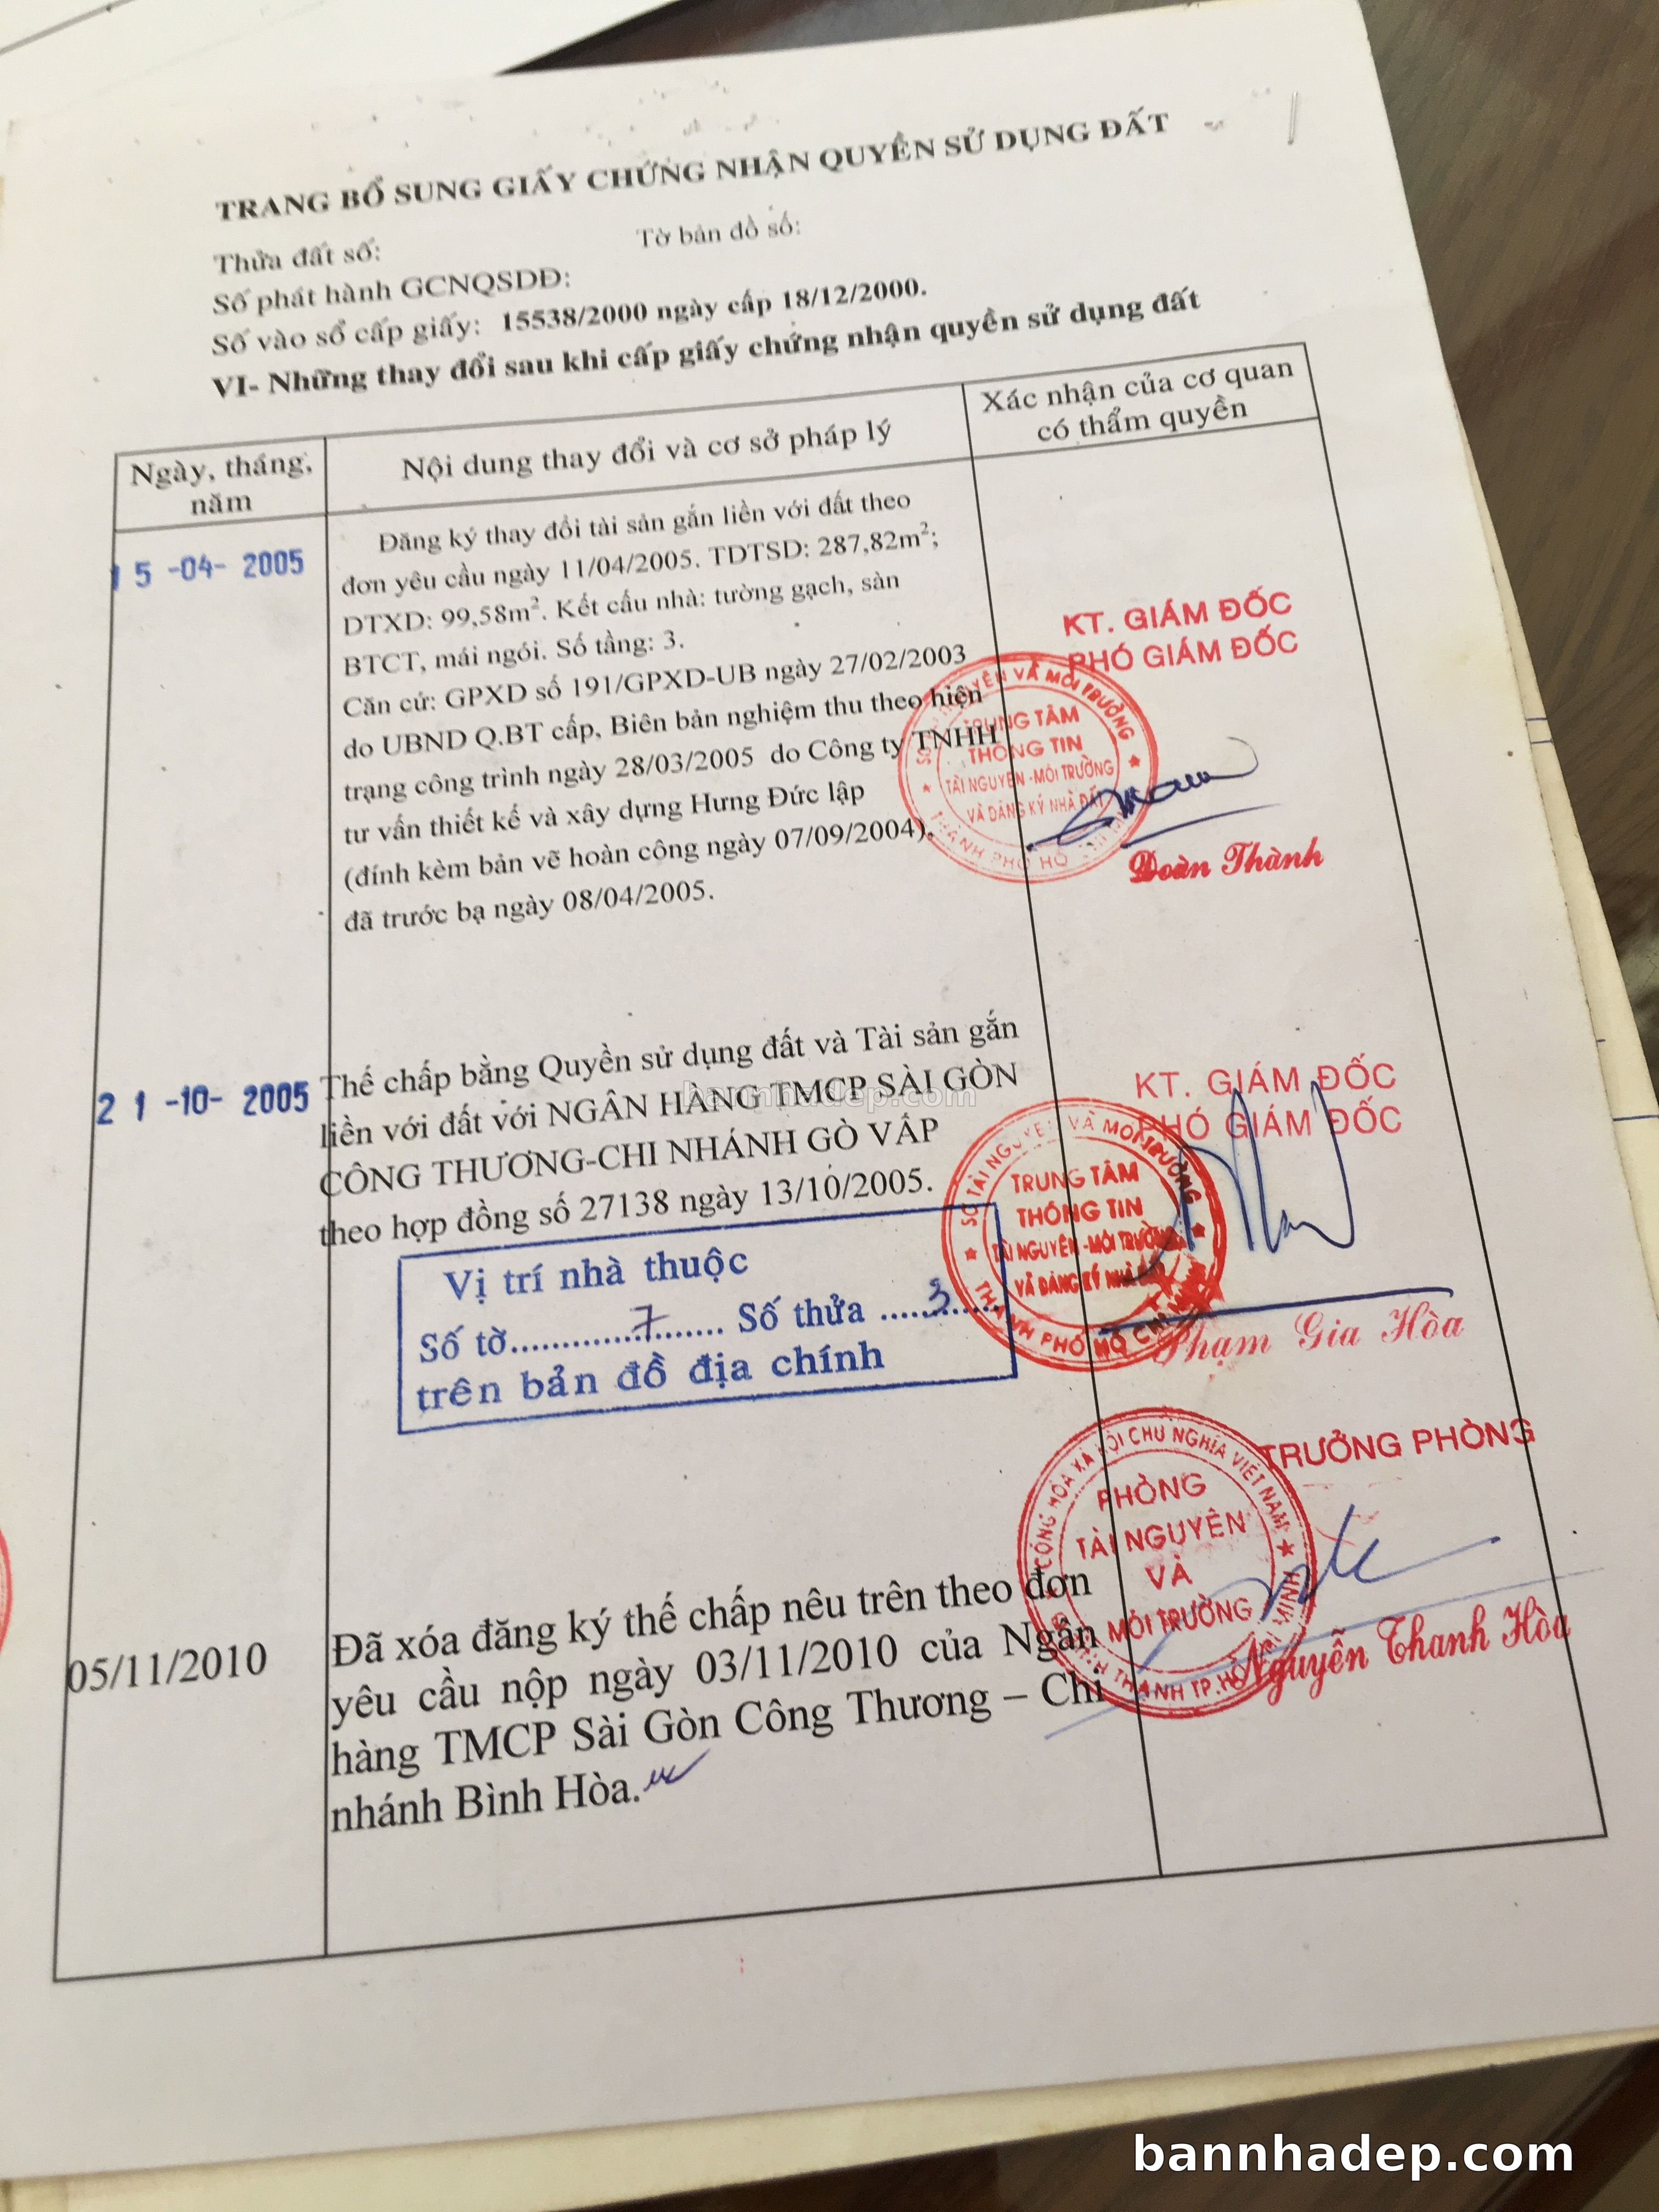 TRANG BỔ SUNG GIẤY CHỨNG NHẬN QUYỀN SỬ DỤNG ĐẤT
Thửa đất số: Tờ bản đồ số:
Số phát hành GCNQSDĐ:
Số vào sổ cấp giấy: 15538/2000 ngày cấp 18/12/2000.
VI- Những thay đổi sau khi cấp giấy chứng nhận quyền sử dụng đất
Ngày, tháng,
năm
Nội dung thay đổi và cơ sở pháp lý
Xác nhận của cơ quan
có thẩm quyền
15 -04- 2005
Đăng ký thay đổi tài sản gắn liền với đất theo
đơn yêu cầu ngày 11/04/2005. TDTSD: 287,82m²;
DTXD: 99,58m². Kết cấu nhà: tường gạch, sàn
BTCT, mái ngói. Số tầng: 3.
Căn cứ: GPXD số 191/GPXD-UB ngày 27/02/2003
do UBND Q.BT cấp, Biên bản nghiệm thu theo hiện
trạng công trình ngày 28/03/2005 do Công ty TNHH
tư vấn thiết kế và xây dựng Hưng Đức lập
(đính kèm bản vẽ hoàn công ngày 07/09/2004).
đã trước bạ ngày 08/04/2005.
KT. GIÁM ĐỐC
PHÓ GIÁM ĐỐC
SỞ TÀI NGUYÊN VÀ MÔI TRƯỜNG
TRUNG TÂM
THÔNG TIN
TÀI NGUYÊN -MÔI TRƯỜNG
VÀ ĐĂNG KÝ NHÀ ĐẤT
THÀNH PHỐ HỒ CHÍ MINH
Đoàn Thành
21 -10- 2005
Thế chấp bằng Quyền sử dụng đất và Tài sản gắn
liền với đất với NGÂN HÀNG TMCP SÀI GÒN
CÔNG THƯƠNG-CHI NHÁNH GÒ VẤP
theo hợp đồng số 27138 ngày 13/10/2005.
bannhadep.com
KT. GIÁM ĐỐC
PHÓ GIÁM ĐỐC
SỞ TÀI NGUYÊN VÀ MÔI TRƯỜNG
TRUNG TÂM
THÔNG TIN
TÀI NGUYÊN -MÔI TRƯỜNG
VÀ ĐĂNG KÝ NHÀ ĐẤT
THÀNH PHỐ HỒ CHÍ MINH
Phạm Gia Hòa
Vị trí nhà thuộc
Số tờ..............7....... Số thửa .......3.......
trên bản đồ địa chính
05/11/2010
Đã xóa đăng ký thế chấp nêu trên theo đơn
yêu cầu nộp ngày 03/11/2010 của Ngân
hàng TMCP Sài Gòn Công Thương – Chi
nhánh Bình Hòa.
TRƯỞNG PHÒNG
CỘNG HÒA XÃ HỘI CHỦ NGHĨA VIỆT NAM
PHÒNG
TÀI NGUYÊN
VÀ
MÔI TRƯỜNG
THẠNH TP.HỒ CHÍ MINH
Nguyễn Thanh Hòa
bannhadep.com